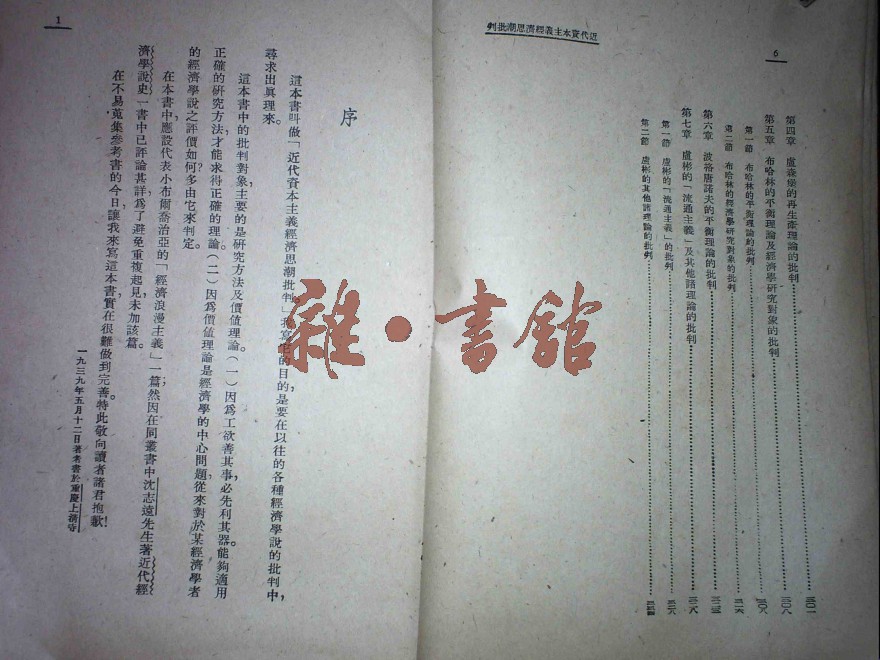 近代資本主義經濟思潮批判
6
第四章 盧森堡的再生產理論的批判……三〇一
第五章 布哈林的平衡理論及經濟學研究對象的批判……三〇八
第一節 布哈林的平衡理論的批判……三〇八
第二節 布哈林的經濟學研究對象的批判……三一六
第六章 波格唐諾夫的平衡理論的批判
第七章 盧彬的「流通主義」及其他諸理論的批判……三二八
第一節 盧彬的「流通主義」的批判……三二八
第二節 盧彬的其他諸理論的批判
1
序
這本書叫做「近代資本主義經濟思潮批判。」我寫它的目的是要在以往的各種經濟學說的批判中,
尋求出眞理來。
這本書中的批判對象,主要的是研究方法及價值理論。(一)因爲工欲善其事,必先利其器。能夠適用
正確的研究方法,才能求得正確的理論;(二)因爲價值理論是經濟學的中心問題,從來對於某經濟學者
的經濟學說之評價如何?多由它來判定。
在本書中,應設代表小布爾喬治亞的「經濟浪漫主義」一篇;然因在同叢書中沈志遠先生著近代經
濟學說史一書中已評論甚詳,爲了避免重複起見,未加該篇。
在不易蒐集參考書的今日,讓我來寫這本書,實在很難做到完善。特此敬向讀者諸君抱歉!
一九三九年五月十二日著者書於重慶上清寺
雜·書舘